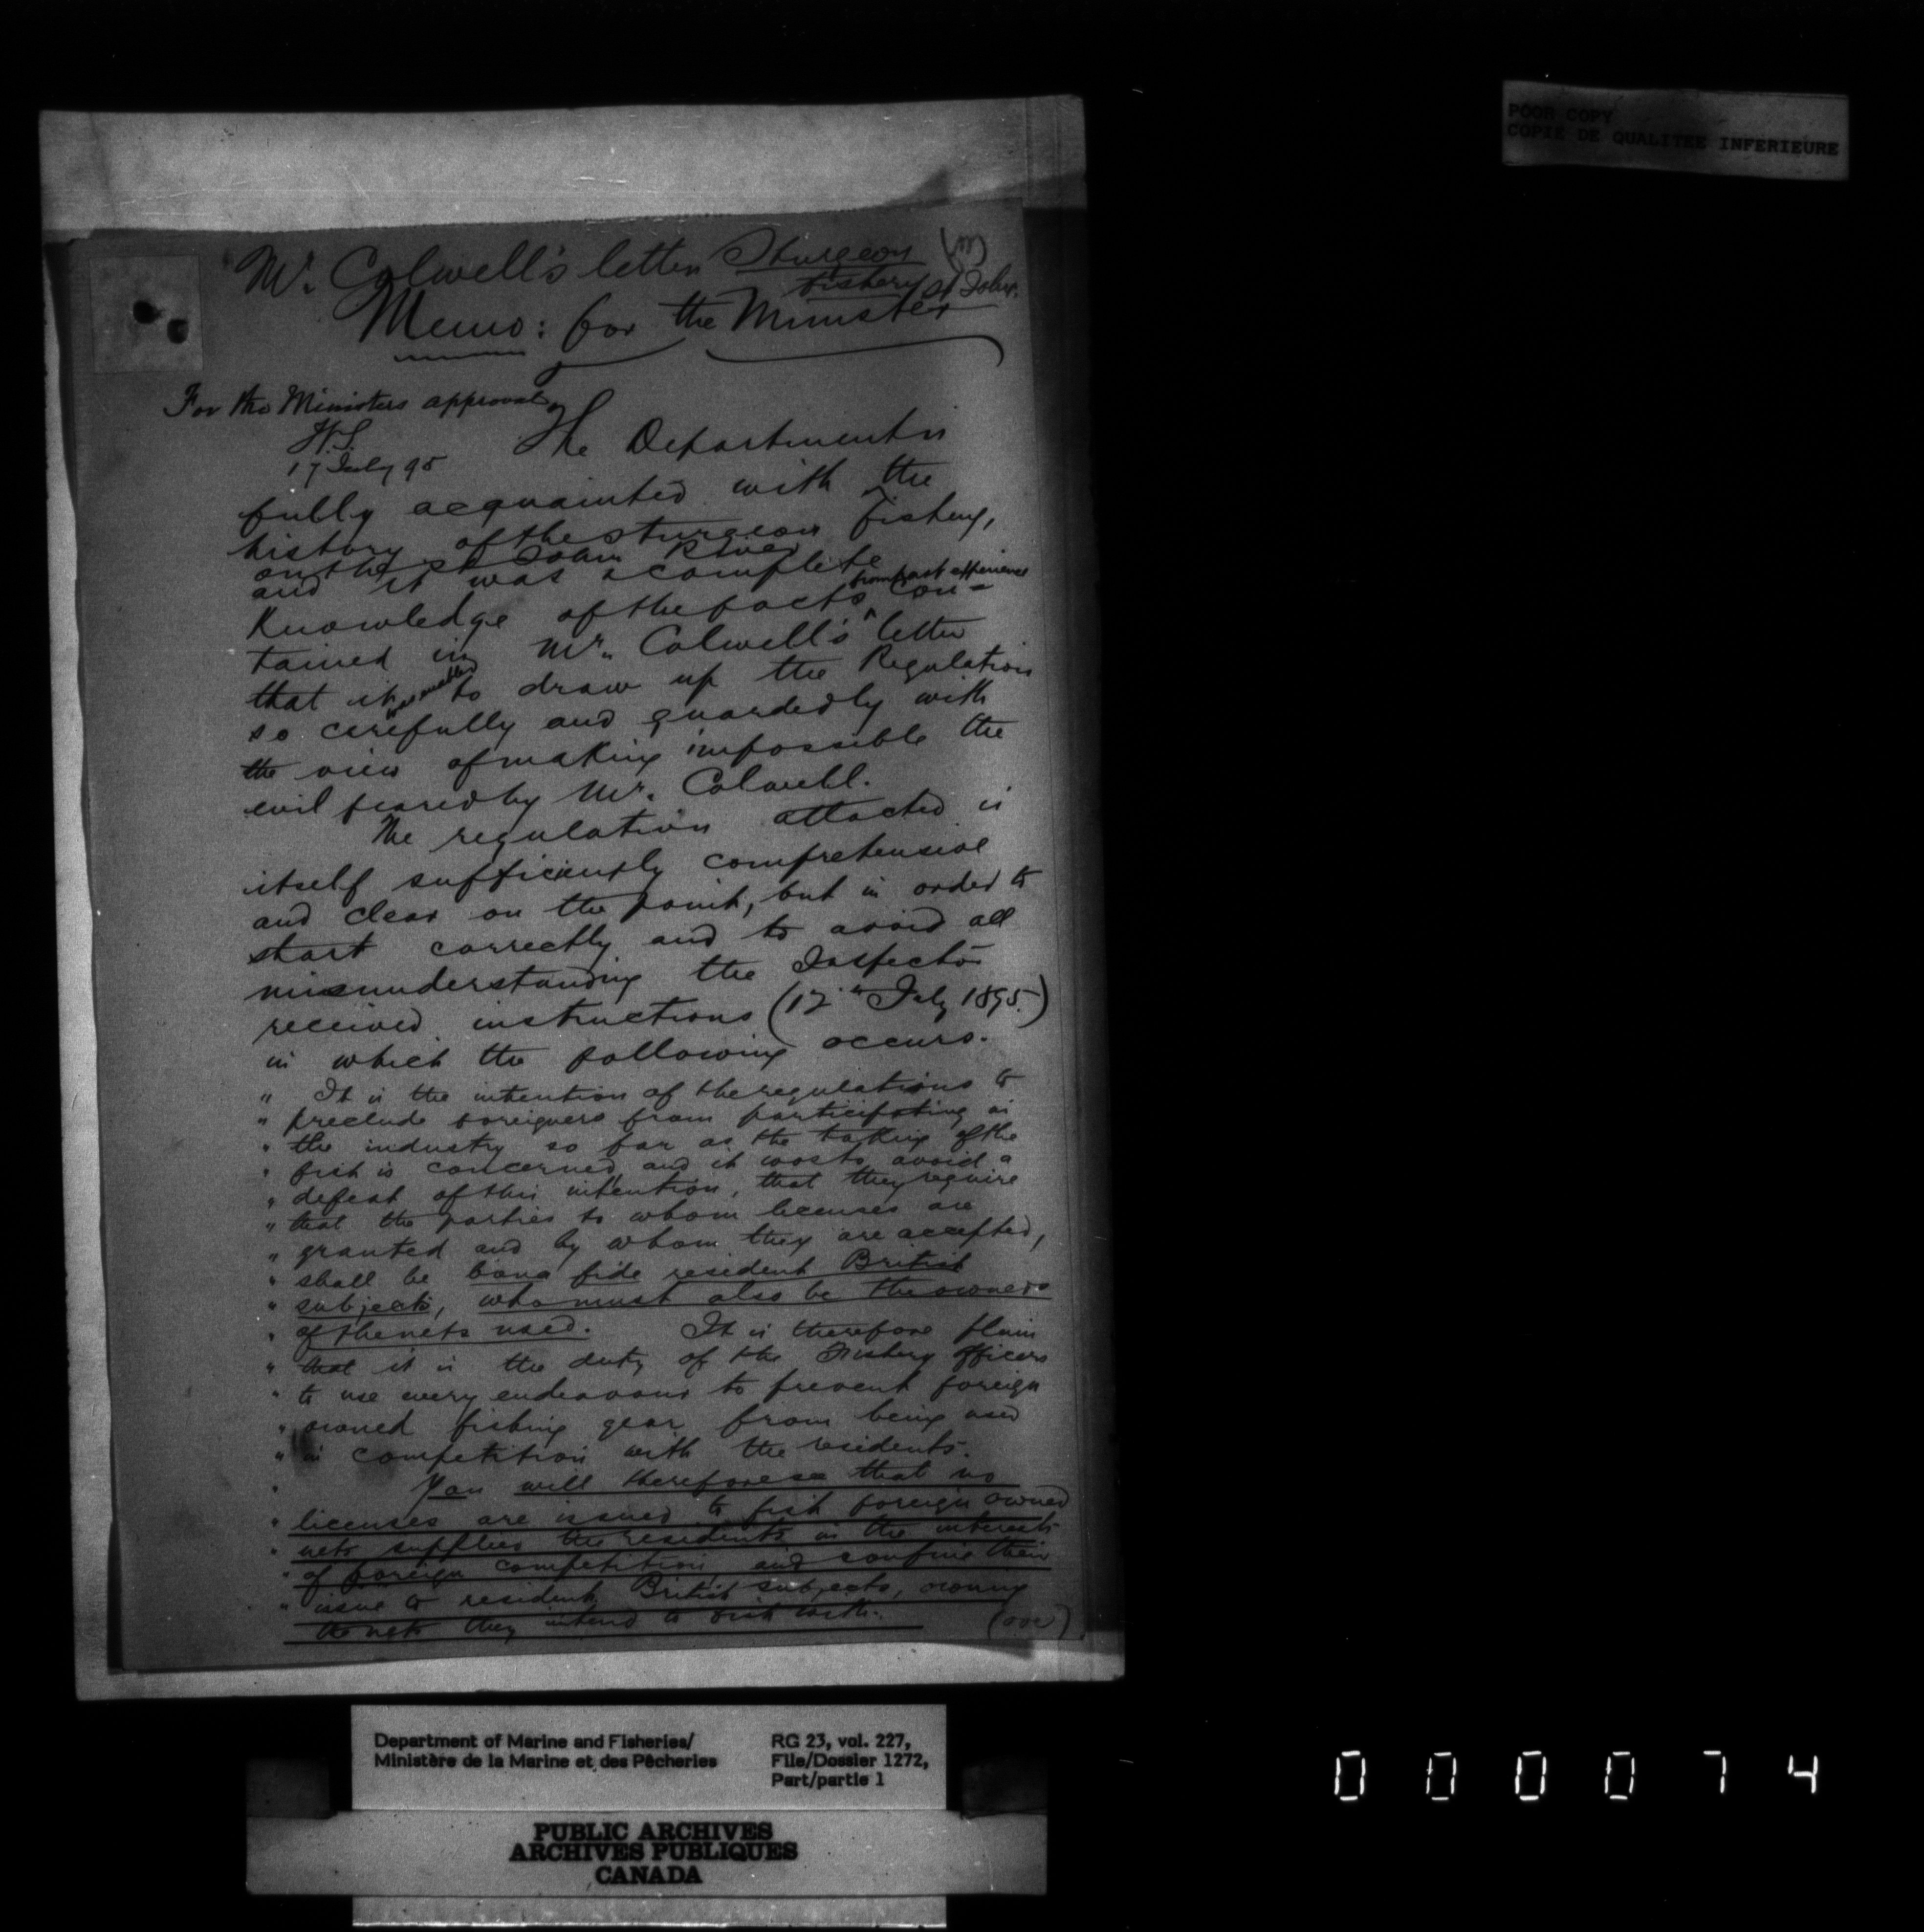 POOR COPY
COPIE DE QUALITEE INFERIEURE
Mr. Colwell's letter Sturgeon
fishery St John.
Memo: for the Minister
For the Ministers approval
H.S.
17 July 95
The Department is
fully acquainted with the
history of the sturgeon fishery,
on the St John River
and it was a complete
from past experience
knowledge of the facts ^ con-
tained in Mr. Colwell's letter
that it was enabled to draw up the Regulation
so carefully and guardedly with
the view of making impossible the
evil feared by Mr. Colwell.
The regulation attached is
itself sufficiently comprehensive
and clear on the point, but in order to
start correctly and to avoid all
misunderstanding the Inspector
received instructions (12th July 1895.)
in which the following occurs.
" It is the intention of the regulations to
" preclude foreigners from participating in
" the industry so far as the taking of the
" fish is concerned, and it was to avoid a
" defeat of this intention, that they require
" that the parties to whom licenses are
" granted and by whom they are accepted,
" shall be bona fide resident British
" subjects, who must also be the owners
" of the nets used. It is therefore plain
" that it is the duty of the Fishery Officers
" to use every endeavour to prevent foreign
" owned fishing gear from being used
" in competition with the residents.
" You will therefore see that no
" licenses are issued to fish foreign owned
" nets supplied the residents in the interests
" of foreign competition, and confine their
" issue to resident British subjects, owning
the nets they intend to fish with.
(over)
Department of Marine and Fisheries/
Ministère de la Marine et des Pêcheries
RG 23, vol. 227,
File/Dossier 1272,
Part/partie 1
PUBLIC ARCHIVES
ARCHIVES PUBLIQUES
CANADA
000074